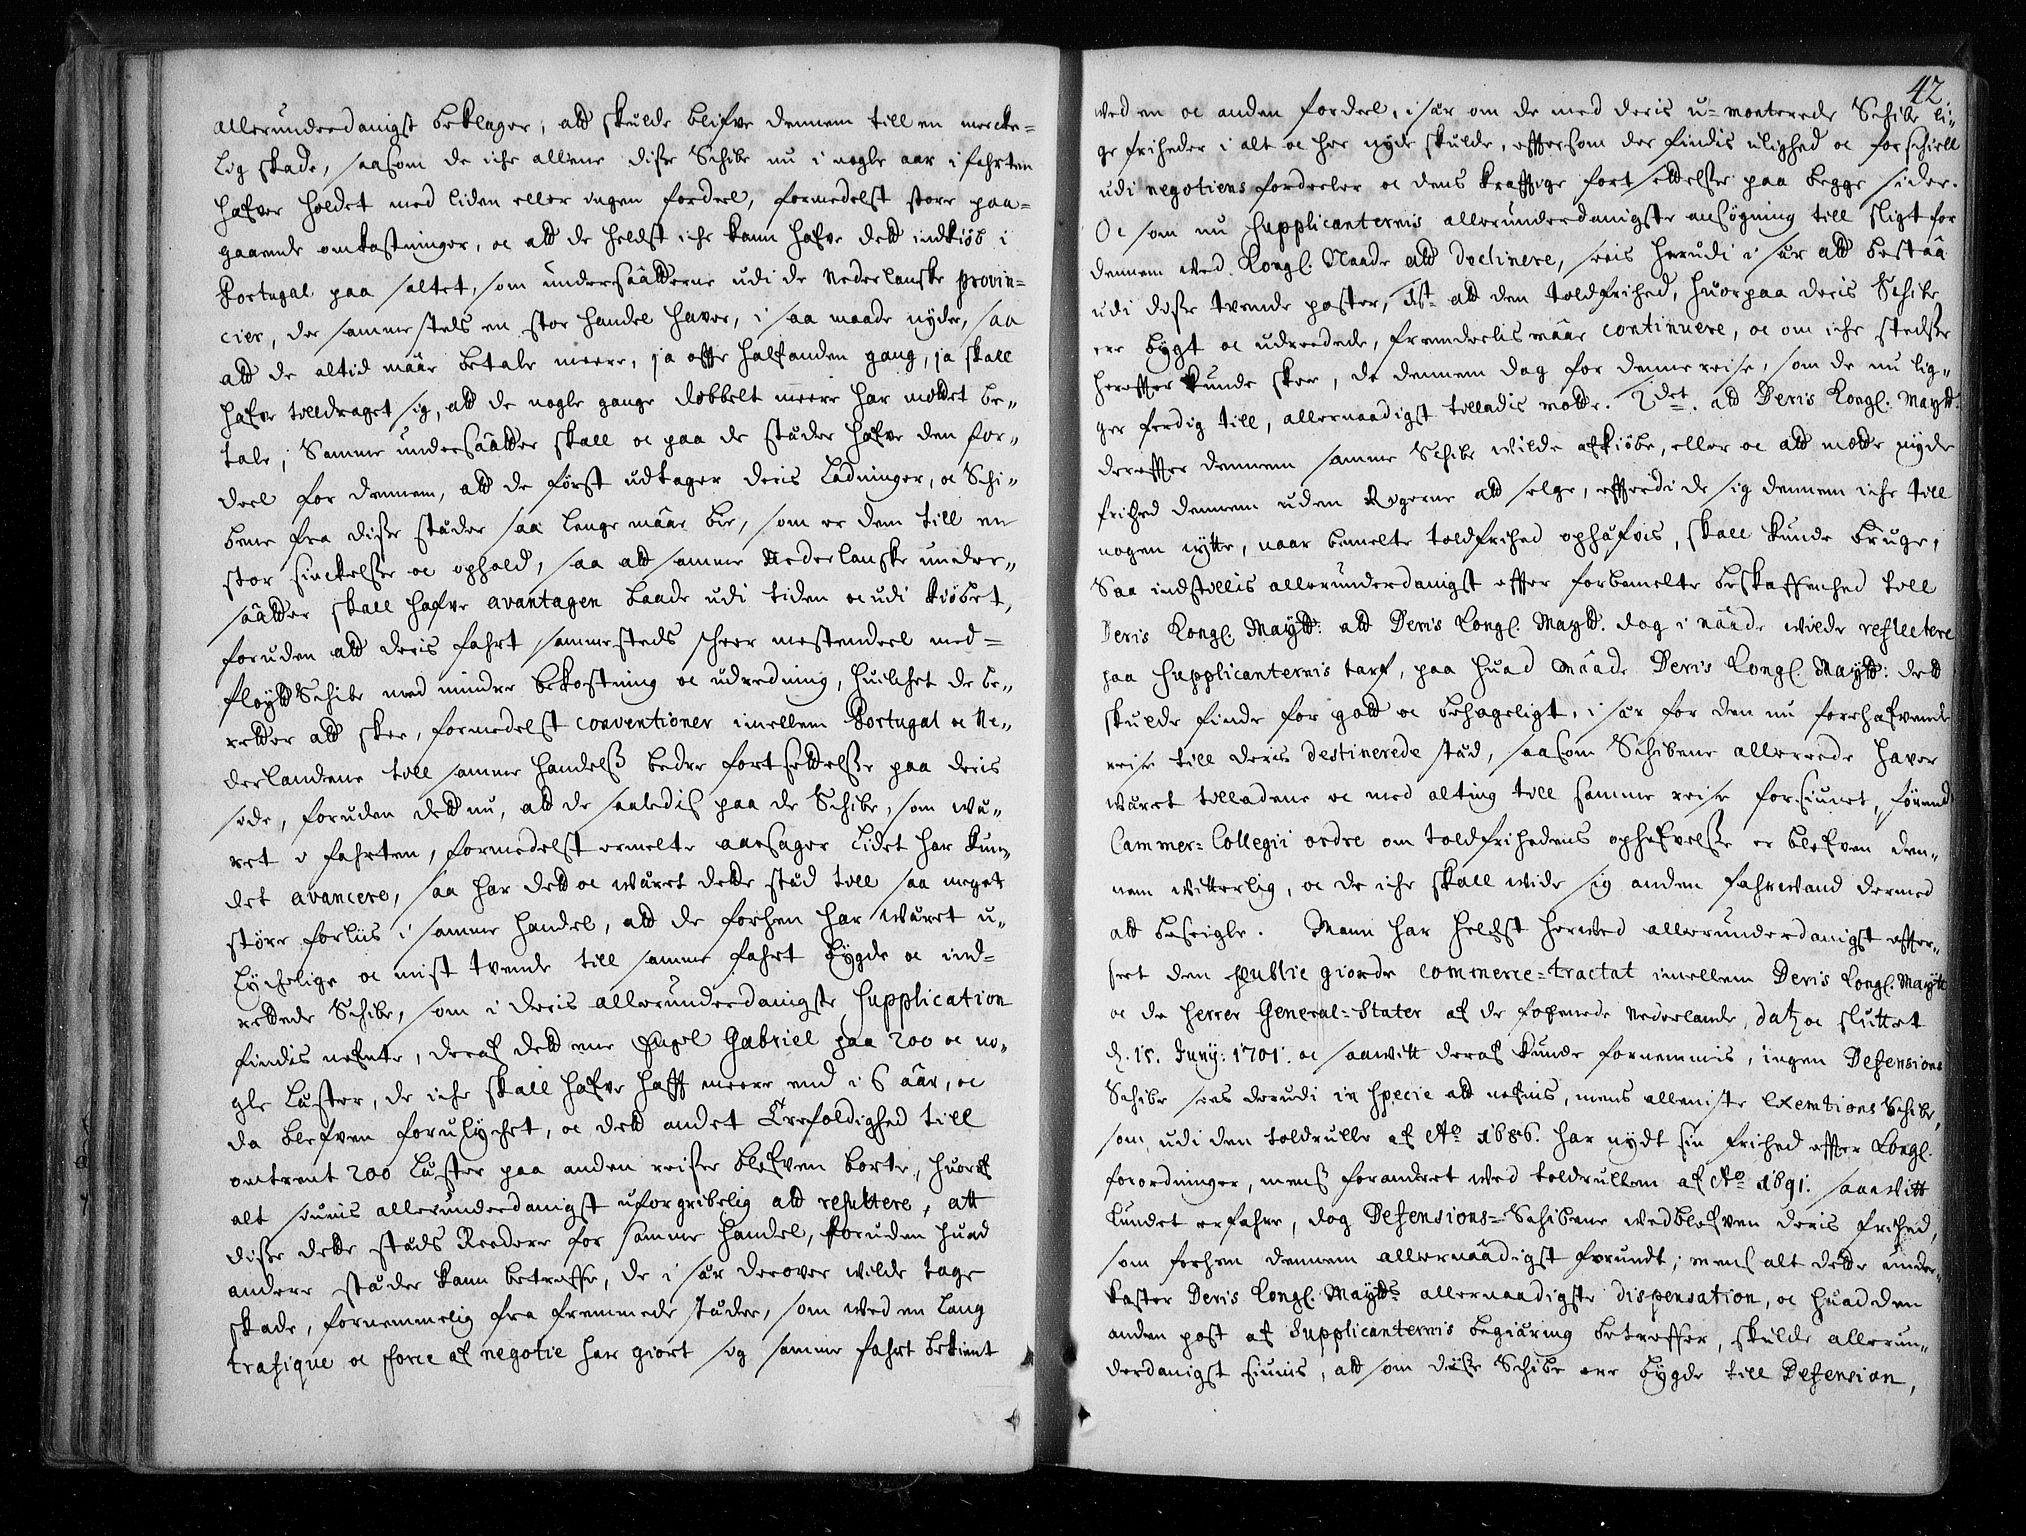 allerunderdanigst beklager, att skulde blifve dennem till en mercke=
lig skade, saasom de iche allene disse Schibe nu i nogle aar i fahrten
hafver holdet med liden eller ingen fordeel, formedelst store paa=
gaaende omkostninger, oc att de heldst iche kand hafve dett indkiøb i
Portugal paa saltet, som undersaatterne udi de Nederlanske Provin=
cier, der sammesteds en stor handel haver, i saa maade nyder, saa
att de altid maae betale meere, ja offte halfanden gang, ja skall
hafve tilldraget sig, att de nogle gange dobbelt meere har mottet be=
tale; Samme undersaatter skall oc paa de stæder hafve den for=
deel for dennem, att de først udtager deris Ladninger, oc Schi=
bene fra disse stæder saa lenge maae bie, som er dem till en
stor sinckelsse oc ophold, saa att samme Nederlanske under=
saatter skall hafve avantagen baade udi tiden oc udi kiøbet,
foruden att deris fahrt sammesteds scheer mestendeel med=
fløytt Schibe med mindre bekostning oc udredning, huilchet de be=
retter att skee, formedelst conventioner imellem Portugal oc Ne=
derlandene till samme handelss bedre fortsettelsse paa deris
side, foruden dett nu, att de saaledis paa de Schibe, som wæ=
ret i fahrten, formedelst ermelte aarsager lidet har kun=
det avancere, saa har dett oc wæret dette stæd till saa meget
større forliis i samme handel, att de forhen har wæret u=
lychelige oc mist tvende till samme fahrt bygde oc ind=
rettede Schibe, som i deris allerunderdanigste Supplication
findis nefnte, deraf dett ene Engel Gabriel paa 200 oc no=
gle Læster, de iche skall hafve hafft meere end i 6 aar, oc
da blefven forulychet, oc dett andet Trefoldighed till
omtrent 200 Læster paa anden reisse blefven borte, huoraf
alt siunis allerunderdanigst uforgribelig att resultere, att
disse dette stæds Reedere for samme handel, foruden huad
andere stæder kand betreffe, de i sær derover wilde tage
skade, fornemmelig fra fremmede stæder, som ved en lang
trafique oc force af negotie har giort sig samme fahrt bekient
42.
wed en oc anden fordeel, i sær om de med deris u=monterede Schibe li=
ge friheder i alt oc her nyde skulde, effttersom der findis ulighed oc forschiell
udi negotiens fordeeler oc dens krafftige fortsettelsse paa begge sider.
Oc som nu Supplicanternis allerunderdanigste ansøgning till sligt for
dennem wed Kongl. Naade att declinere, sees herudi i sær att bestaa
udi disse tvende poster, 1st. att den toldfrihed, huorpaa deris Schibe
ere bygt oc udreedede, fremdeelis maae continuere, oc om iche stedsse
hereffter kunde skee, de dennem dog for denne reise, som de nu lig=
ger ferdig till, allernaadigst tilladis motte. 2det. att Deris Kongl. Maytt.
dereffter dennem samme Schibe wilde afkiøbe, eller oc att motte nyde
frihed dennem uden Rigerne att selge, effterdi de sig dennem iche till
nogen nytte, naar bemelte toldfrihed ophæfvis, skall kunde bruge;
Saa indstillis allerunderdanigst effter forbemelte beskaffenhed till
Deris Kongl. Maytt: att Deris Kongl. Maytt. dog i naade wilde reflectere
paa Supplicanternis tarf, paa huad maade Deris Kongl. Maytt: dett
skulde finde for gott oc behageligt, i sær for den nu forehafvende
reise till deris destinerede stæd, saasom Schibene allereede haver
wæret tilladene oc med alting till samme reise forsiunet, førend
Cammer=Collegii ordre om toldfrihedens ophæfvelsse er blefven den=
nem witterlig, oc de iche skall wide sig anden fahrwand dermed
att beseigle. Mann har helst herwed allerunderdanigst effter=
seet den Public giorde commerce=tractat imellem Deris Kongl. Maytt
oc de Herrer General=Stater af de foreenede Nederlande, dat. oc sluttet
d. 15. Junij: 1701. oc saawitt deraf kunde fornemmis, ingen Defensions
Schibe sees derudi in specie att nefnis, mens alleniste Exemtions Schibe,
som udi den toldrulle af Ao 1686. har nydt sin frihed effter Kongl.
forordninger, mens forandret wed toldrullen af Ao 1691. saavitt
kundet erfahre, dog Defensions=Schibene wedblefven deris frihed,
som forhen dennem allernaadigst forundt; mens alt dette under=
kaster Deris Kongl. Maytts allernaadigste dispensation, oc huad den
anden post af Supplicanternis begiæring betreffer, skulde allerun=
derdanigst siunis, att som disse Schibe ere bygde till Defension,